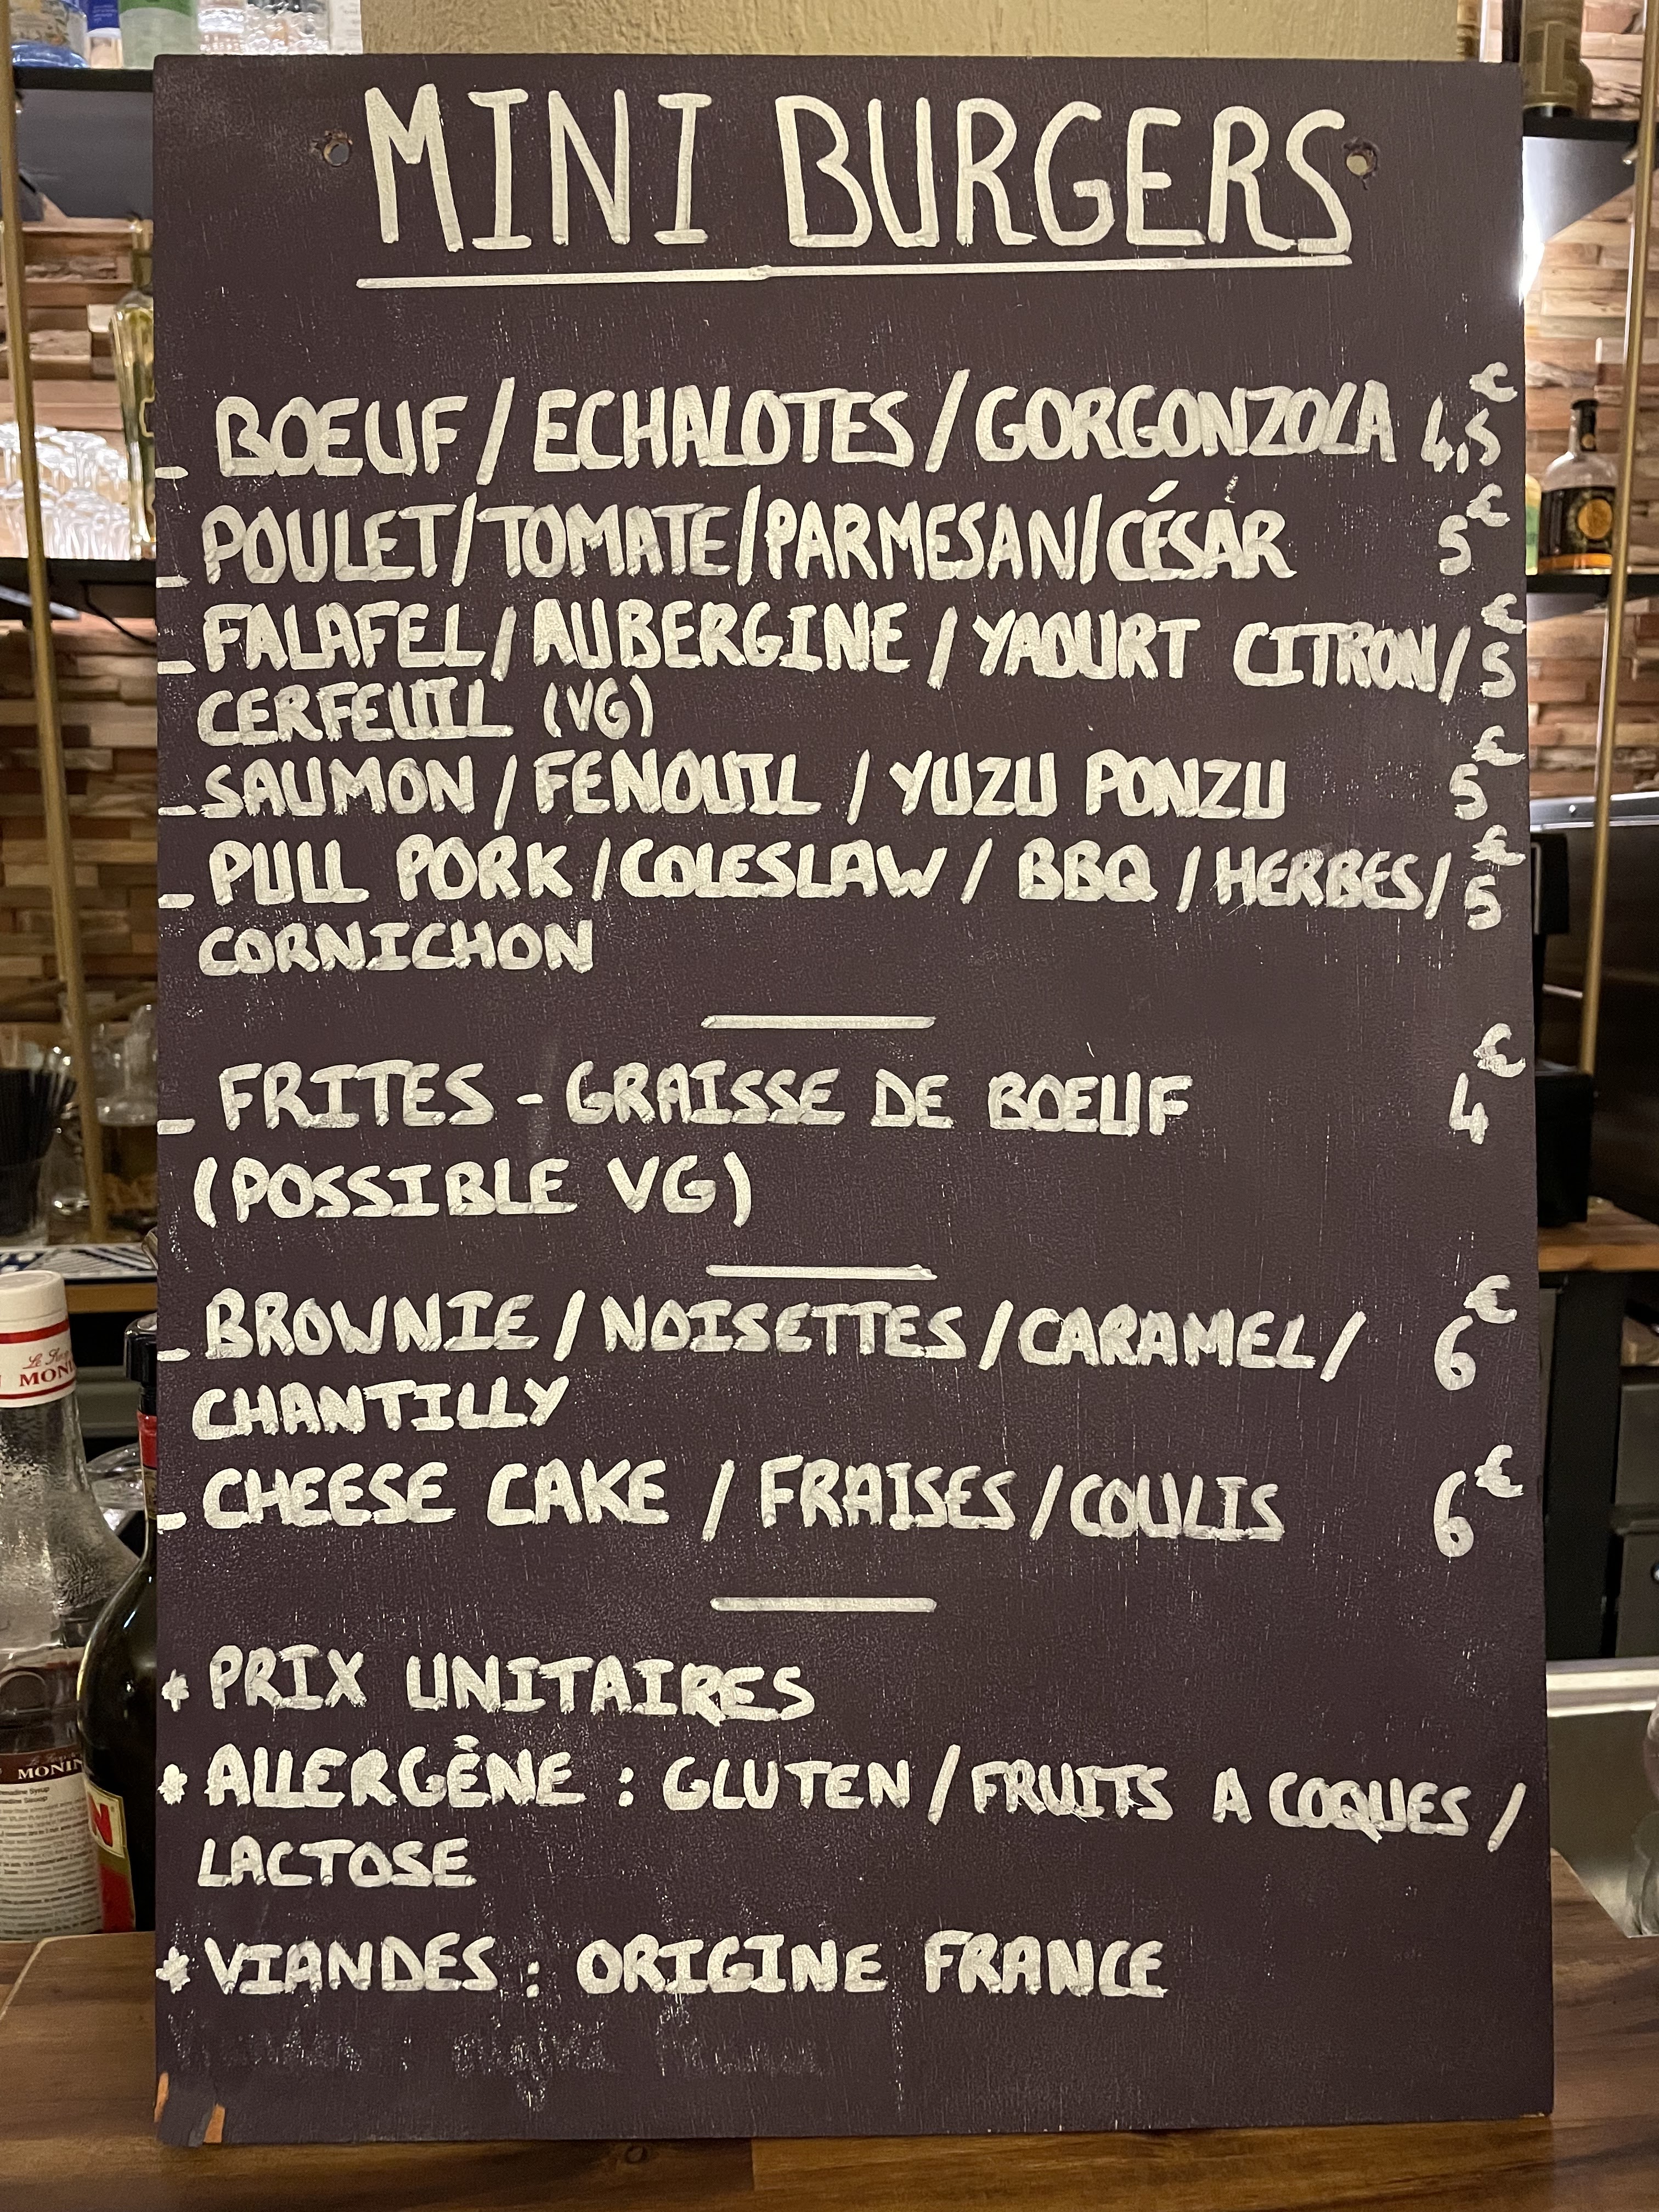 MINI BURGERS
_ BOEUF / ECHALOTES / GORGONZOLA 4,5€
_ POULET/TOMATE/PARMESAN/CÉSAR 5€
_ FALAFEL / AUBERGINE / YAOURT CITRON / 5€
CERFEUIL (VG)
_ SAUMON / FENOUIL / YUZU PONZU 5€
_ PULL PORK / COLESLAW / BBQ / HERBES / 5€
CORNICHON
_ FRITES - GRAISSE DE BOEUF 4€
(POSSIBLE VG)
_ BROWNIE / NOISETTES / CARAMEL / 6€
CHANTILLY
_ CHEESE CAKE / FRAISES / COULIS 6€
* PRIX UNITAIRES
* ALLERGÈNE : GLUTEN / FRUITS A COQUES /
LACTOSE
* VIANDES : ORIGINE FRANCE
MONIN
MONIN